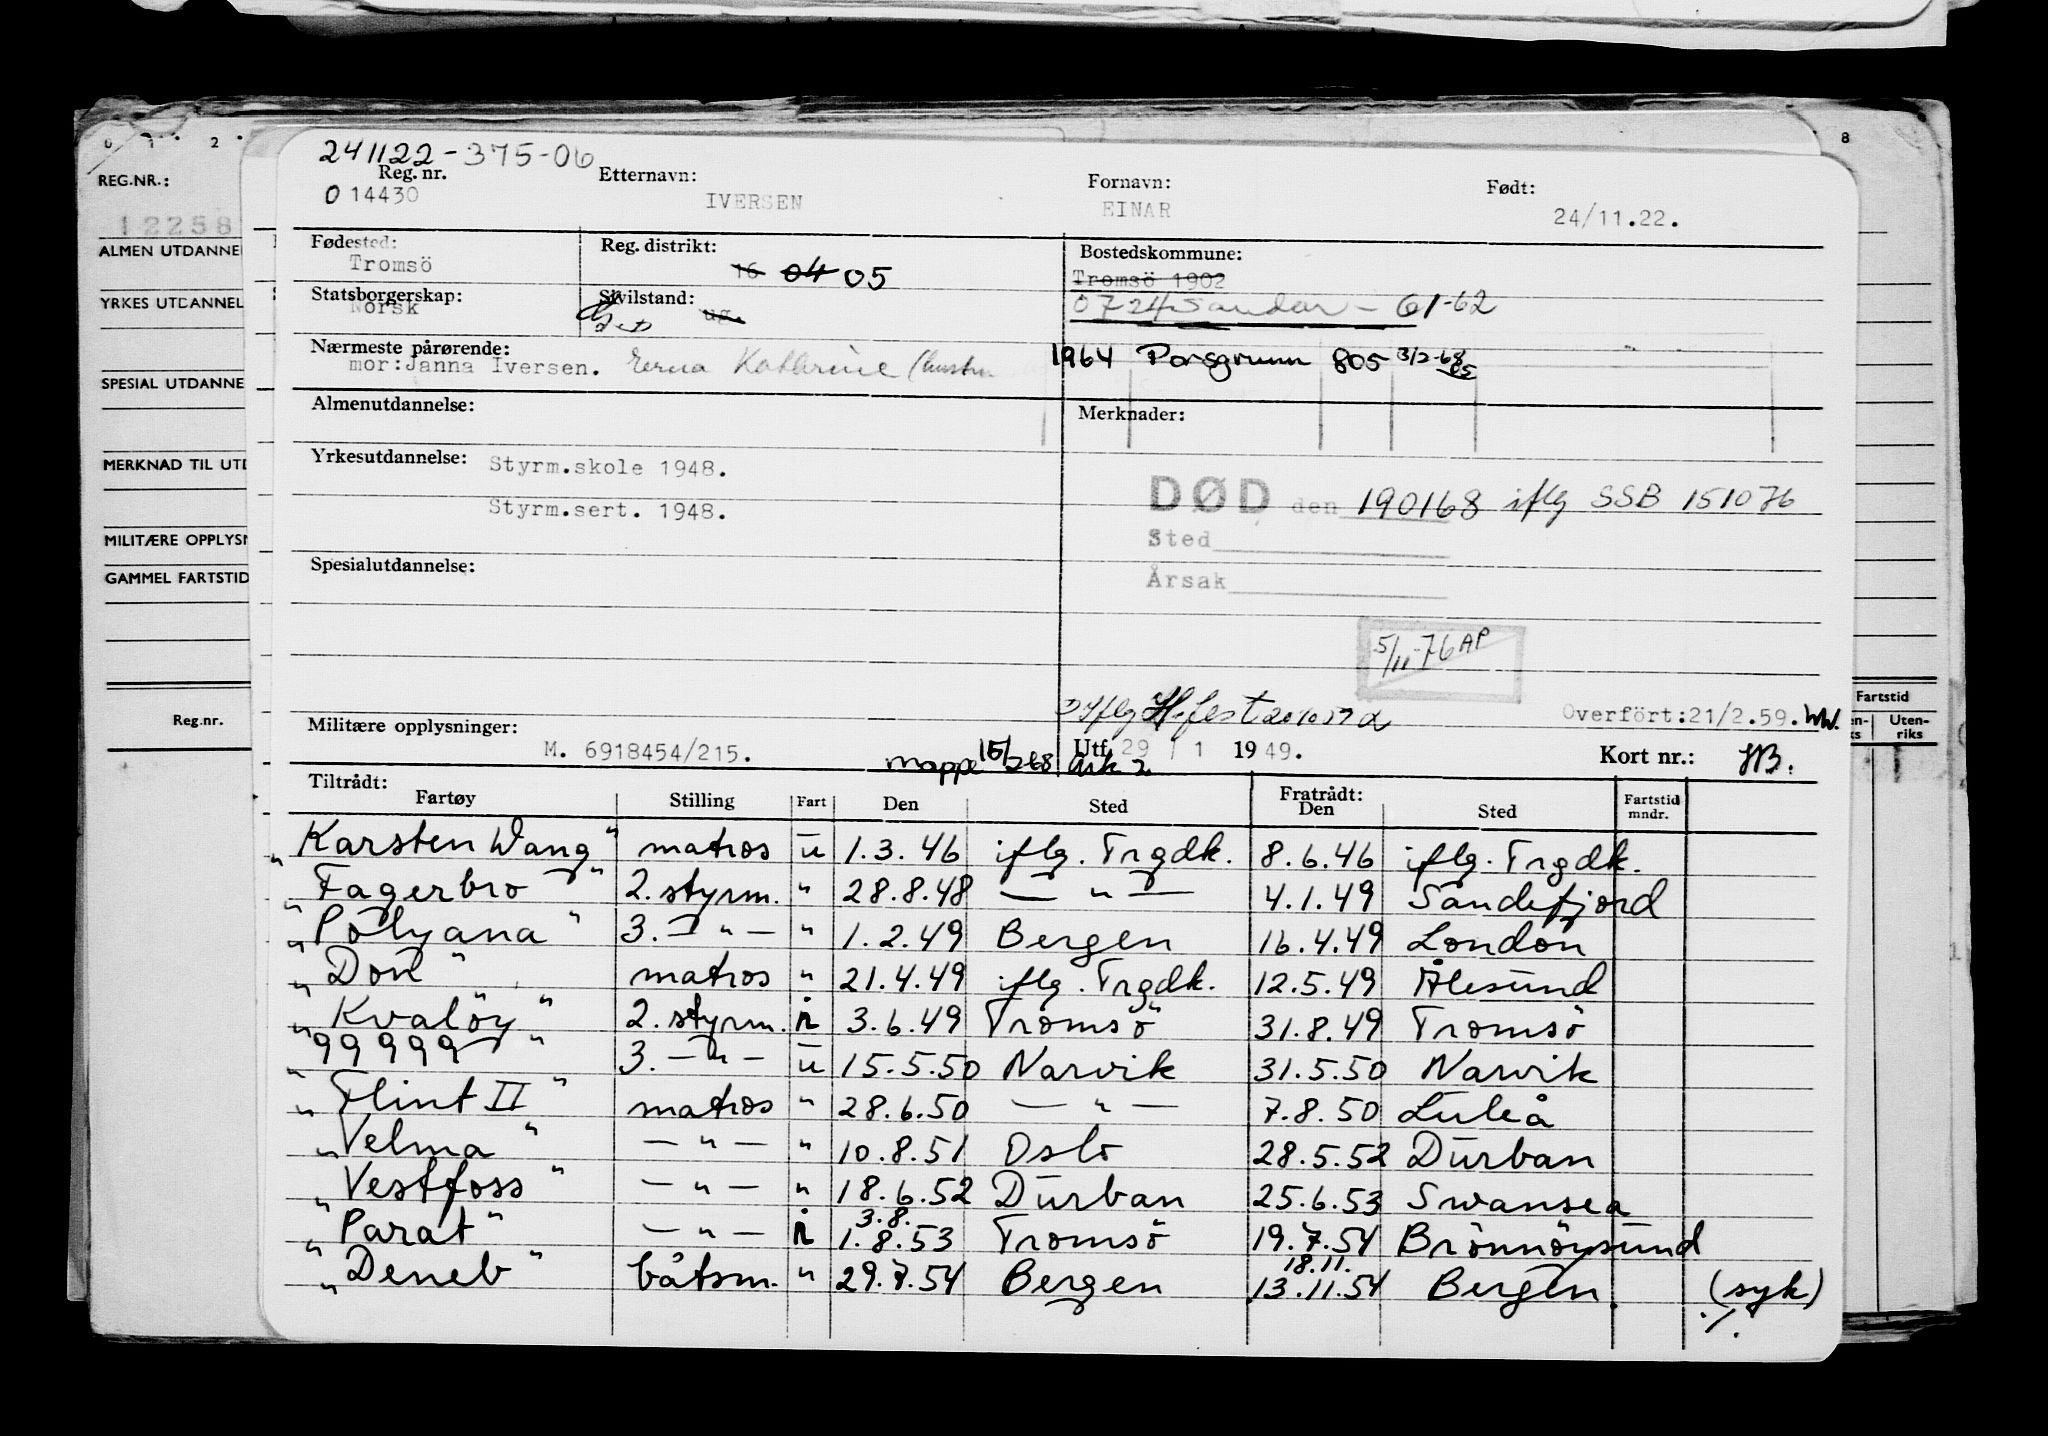 241122-375-06
Reg. nr. Etternavn: Fornavn: Født:
0 14430 IVERSEN EINAR 24/11.22.
Fødested: Reg. distrikt: Bostedskommune:
Tromsö 16 04 05 Tromsö 1902
Statsborgerskap: Sivilstand: 0724 Sandar - 61-62
Norsk ug. Gift
Nærmeste pårørende: 1964 Porsgrunn 805 3/2-68
mor:Janna Iversen. Erna Kathrine (hustru
Almenutdannelse: Merknader:
Yrkesutdannelse: Styrm.skole 1948.
DØD den 190168 iflg SSB 151076
Styrm.sert. 1948.
Sted
Spesialutdannelse: Årsak
5/11-76 AP
Militære opplysninger: Overfört:21/2.59. WW.
M. 6918454/215. mappe 15/2 68 Utf. 29 / 1 1949. Kort nr.: HB.
Ark 2
Tiltrådt: Fratrådt:
Fartøy Stilling Fart Den Sted Den Sted Fartstid mndr.
"Karsten Wang" matros u 1.3.46 iflg. Trgdk. 8.6.46 iflg. Trgdk.
"Fagerbro" 2. styrm. " 28.8.48 — " — 4.1.49 Sandefjord
"Polyana" 3. — " — " 1.2.49 Bergen 16.4.49 London
"Don" matros " 21.4.49 iflg. Trgdk. 12.5.49 Ålesund
"Kvalöy" 2. styrm. i 3.6.49 Tromsö 31.8.49 Tromsö
"99999" 3. — " — u 15.5.50 Narvik 31.5.50 Narvik
"Flint II" matros " 28.6.50 — " — 7.8.50 Luleå
"Velma" — " — " 10.8.51 Oslo 28.5.52 Durban
"Vestfoss" — " — " 18.6.52 Durban 25.6.53 Swansea
3.8.
"Parat" — " — i 1.8.53 Tromsö 19.7.54 Brönnöysund
18.11.
"Deneb" båtsm. " 29.7.54 Bergen 13.11.54 Bergen. (syk)
./.
REG.NR.:
12258
ALMEN UTDANNE
YRKES UTDANNEL
SPESIAL UTDANNE
MERKNAD TIL UT
MILITÆRE OPPLYSN
GAMMEL FARTSTID
Reg.nr.
2
8
Fartstid
Uten-
riks